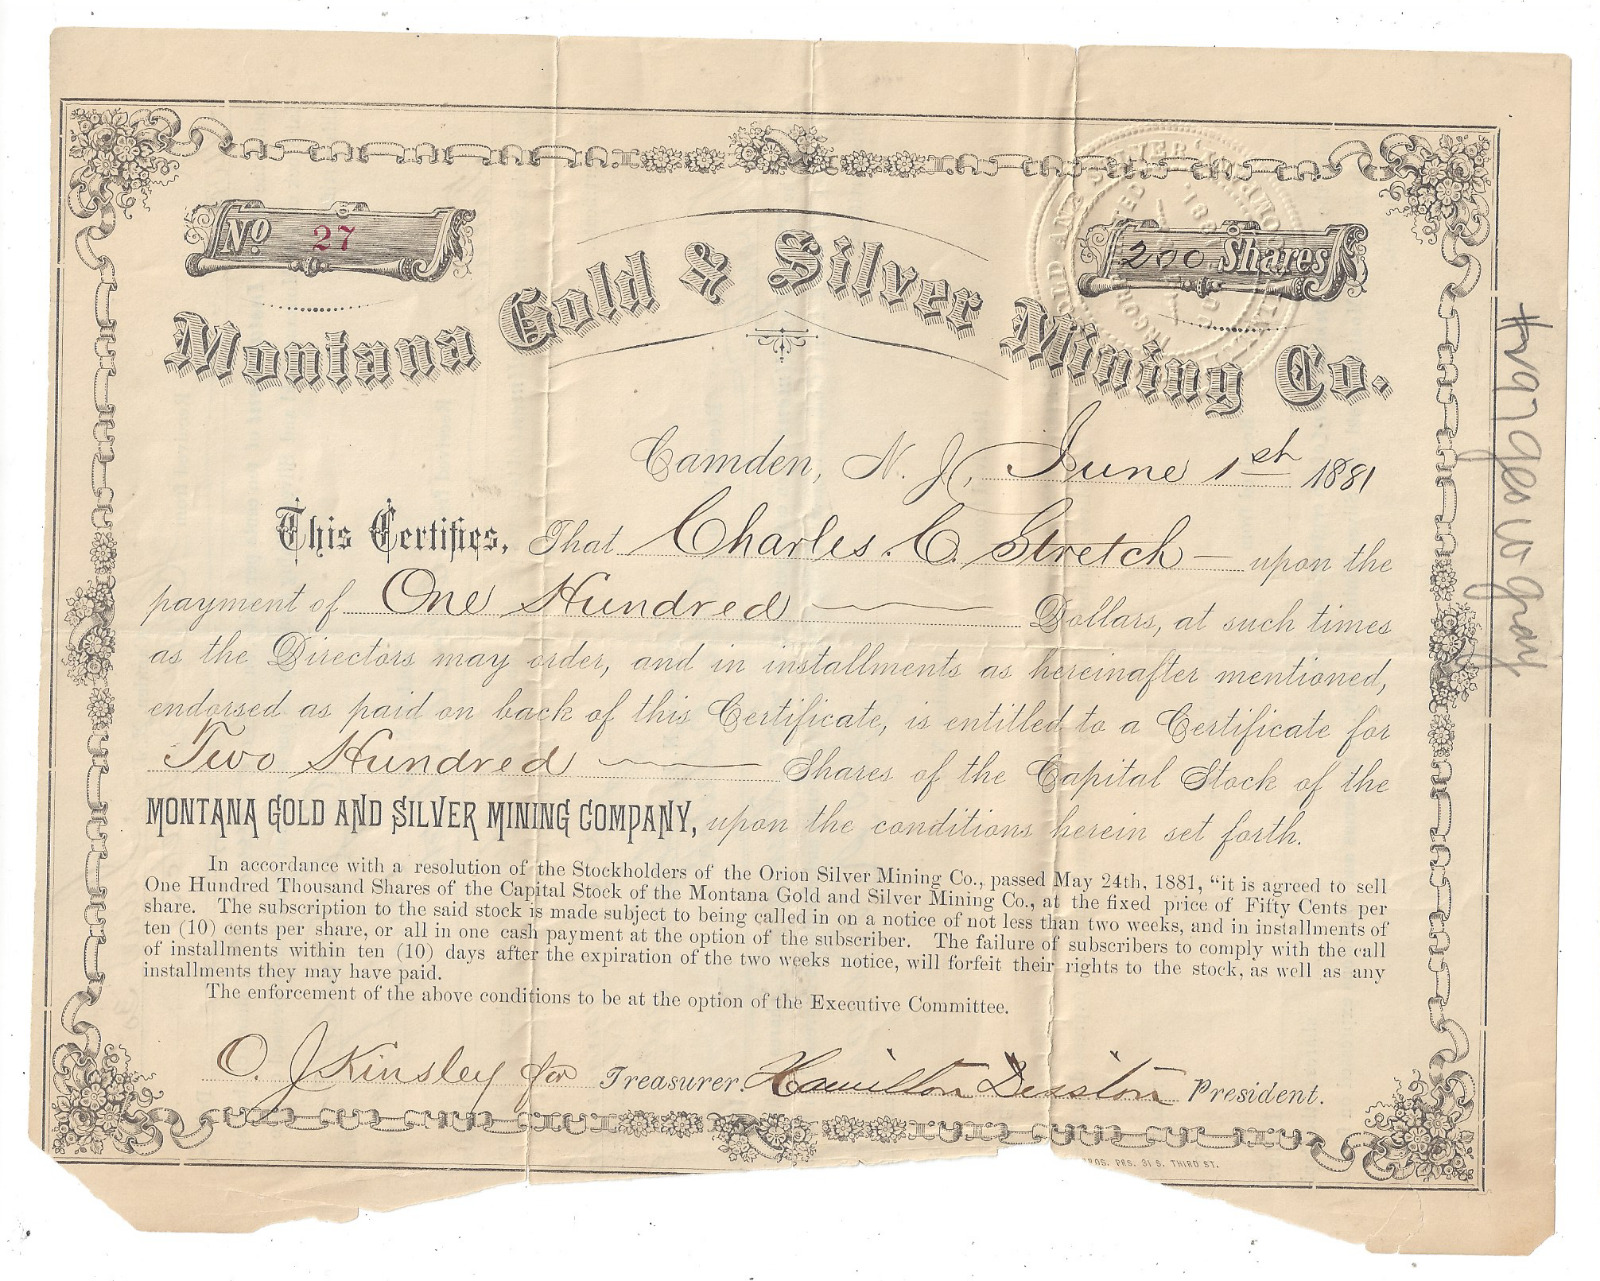 No 27
200 Shares
Montana Gold & Silver Mining Co.
Camden, N. J., June 1st 1881
This Certifies, That Charles. C. Stretch upon the
payment of One Hundred Dollars, at such times
as the Directors may order, and in installments as hereinafter mentioned,
endorsed as paid on back of this Certificate, is entitled to a Certificate for
Two Hundred Shares of the Capital Stock of the
MONTANA GOLD AND SILVER MINING COMPANY, upon the conditions herein set forth.
In accordance with a resolution of the Stockholders of the Orion Silver Mining Co., passed May 24th, 1881, "it is agreed to sell
One Hundred Thousand Shares of the Capital Stock of the Montana Gold and Silver Mining Co., at the fixed price of Fifty Cents per
share. The subscription to the said stock is made subject to being called in on a notice of not less than two weeks, and in installments of
ten (10) cents per share, or all in one cash payment at the option of the subscriber. The failure of subscribers to comply with the call
of installments within ten (10) days after the expiration of the two weeks notice, will forfeit their rights to the stock, as well as any
installments they may have paid.
The enforcement of the above conditions to be at the option of the Executive Committee.
O. J Kinsley for Treasurer Hamilton Disston President.
BROS. PRS. 31 S. THIRD ST.